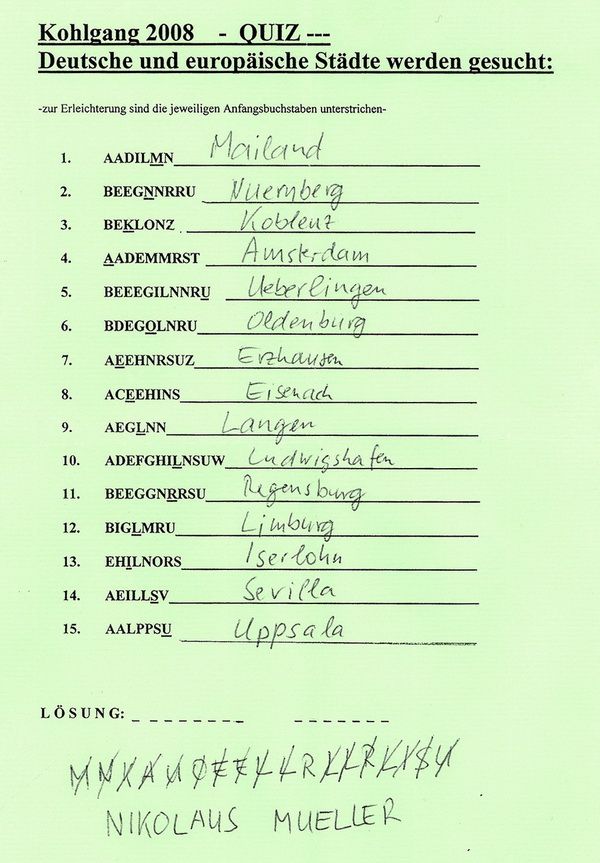 Kohlgang 2008 - QUIZ ---
Deutsche und europäische Städte werden gesucht:
-zur Erleichterung sind die jeweiligen Anfangsbuchstaben unterstrichen-
1. AADILMN Mailand
2. BEEGNNRRU Nuernberg
3. BEKLONZ Koblenz
4. AADEMMRST Amsterdam
5. BEEEGILNNRU Ueberlingen
6. BDEGOLNRU Oldenburg
7. AEEHNRSUZ Erzhausen
8. ACEEHINS Eisenach
9. AEGLNN Langen
10. ADEFGHILNSUW Ludwigshafen
11. BEEGGNRRSU Regensburg
12. BIGLMRU Limburg
13. EHILNORS Iserlohn
14. AEILLSV Sevilla
15. AALPPSU Uppsala
LÖSUNG: _ _ _ _ _ _ _ _ _ _ _ _ _ _ _
NIKOLAUS MUELLER